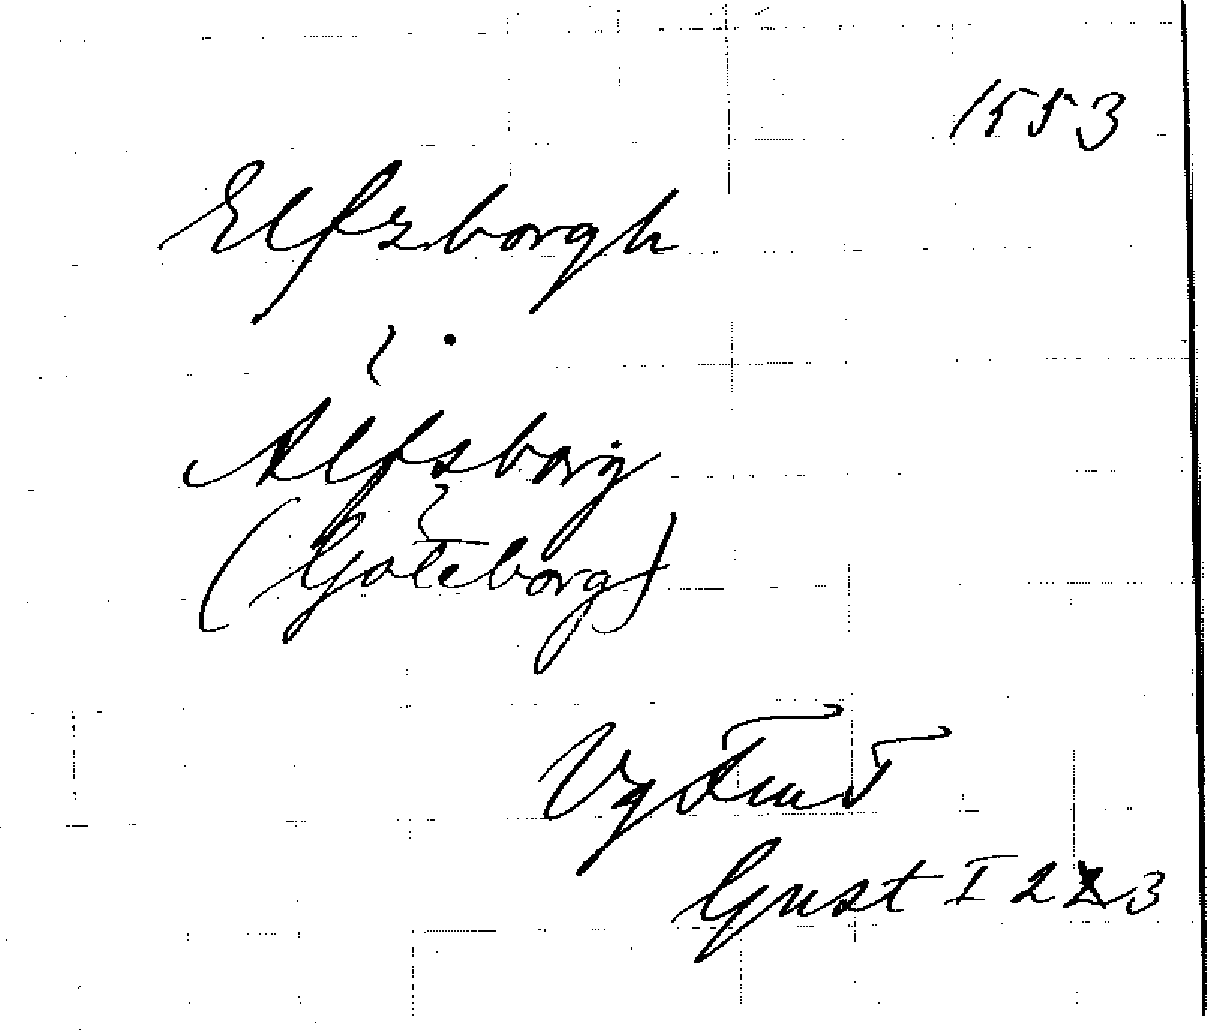 1553
Elfzborgh
Alfsborg
(Göteborg)
Vg
Gust I 223